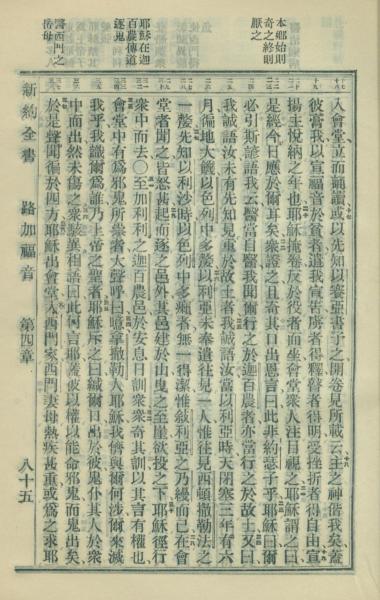 本鄉始則
奇之終則
厭之
耶穌在迦
百農傳道
逐鬼
醫西門之
岳母
入會堂立而誦讀或以先知以賽亞書予之開卷見所載云主之神偕我矣蓋
彼膏我以宣福音於貧者遣我宣告虜者得釋瞽者得明受挫折者得自由宣
揚主悅納之年也耶穌掩卷反於役者而坐會堂眾人注目視之耶穌謂之曰
是經今日應於爾耳矣眾證之且奇其口出恩言曰此非約瑟子乎耶穌曰爾
必引斯諺語我云醫當自醫我聞爾行之於迦百農者亦當行之於故土又曰
我誠語汝未有先知見重於故土者我誠語汝當以利亞時天閉塞三年有六
月徧地大饑以色列中多嫠以利亞未奉遣往見一人惟往見西頓撒勒法之
一嫠先知以利沙時以色列中多癩者無一得潔惟敘利亞之乃縵而已在會
堂者聞之皆怒甚起而逐之邑外其邑建於山曳之至崖欲投之下耶穌徑行
眾中而去〇至加利利之迦百農邑於安息日訓眾眾奇其訓以其言有權也
會堂中有為邪鬼所祟者大聲呼曰噫拿撒勒人耶穌我儕與爾何涉爾來滅
我乎我識爾為誰乃上帝之聖者耶穌斥之曰緘爾口出於彼鬼仆其人於眾
中而出然未傷之眾駭異相語曰此何言耶蓋彼以權以能命邪鬼而鬼出矣
於是聲聞徧於四方耶穌出會堂入西門家西門妻母熱疾甚重或為之求耶
新約全書 路加福音 第四章 八十五